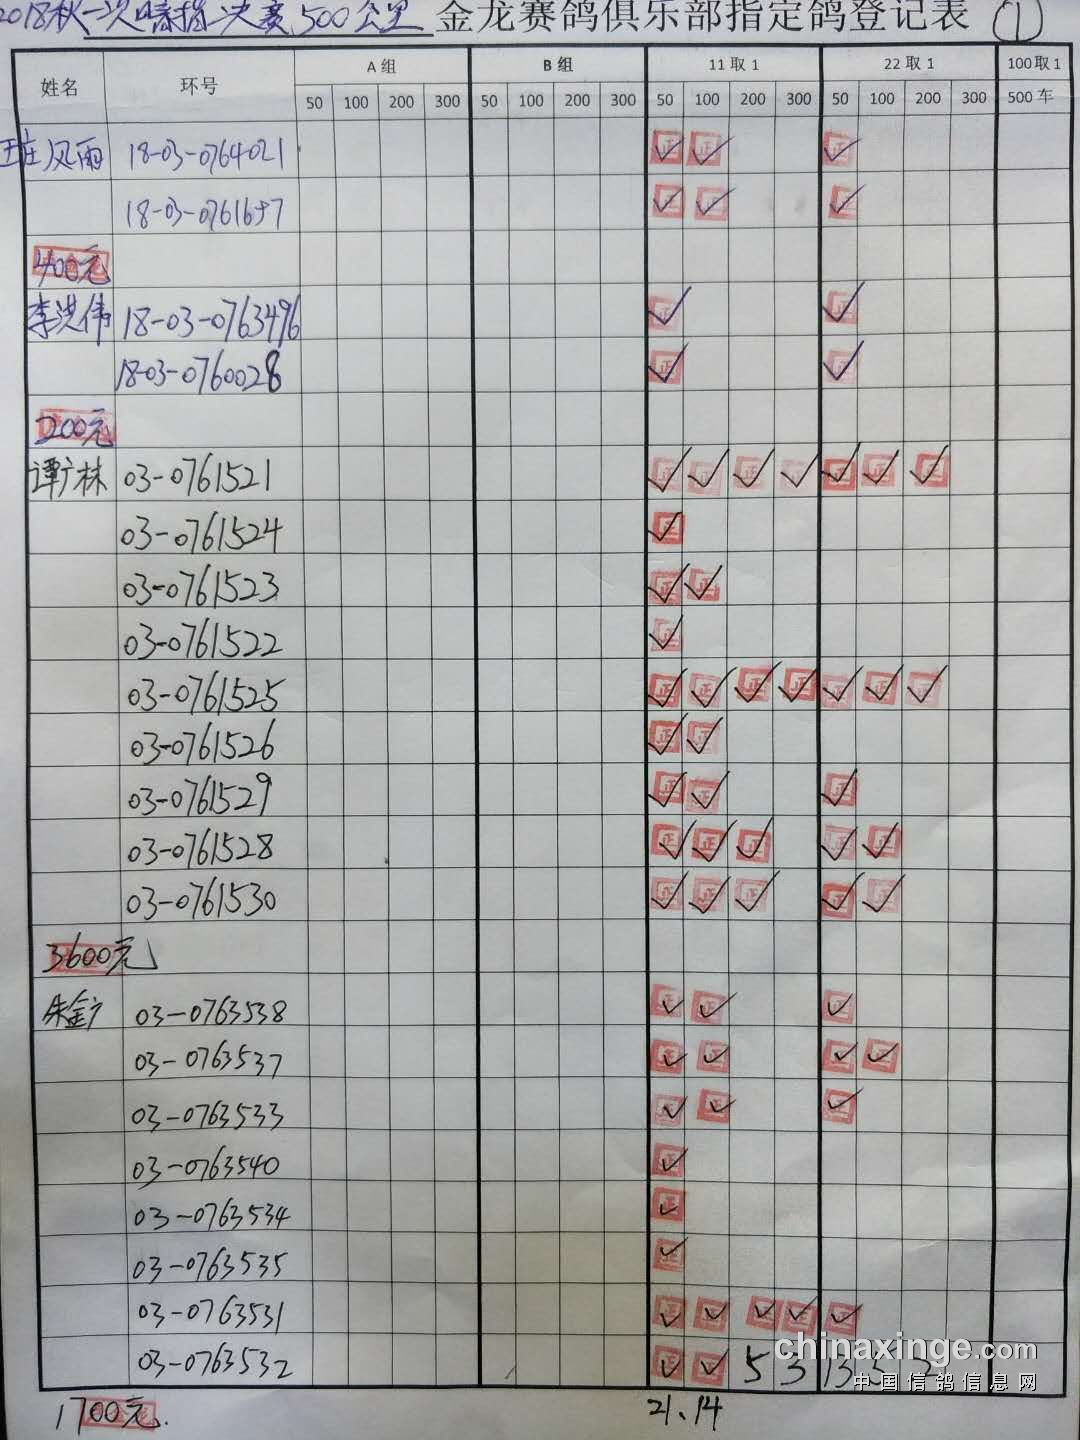 2018秋一次 决赛500公里 金龙赛鸽俱乐部指定鸽登记表 ①
姓名 环号 A组 B组 11取1 22取1 100取1
50 100 200 300 50 100 200 300 50 100 200 300 50 100 200 300 500车
王庄风雨 18-03-0764021 正 正 正
18-03-0761657 正 正 正
400元
李洪伟 18-03-0763496 正 正
18-03-0760028 正 正
200元
谭广林 03-0761521 正 正 正 正 正 正 正
03-0761524 正
03-0761523 正 正
03-0761522 正
03-0761525 正 正 正 正 正 正 正
03-0761526 正 正
03-0761529 正 正 正
03-0761528 正 正 正 正 正
03-0761530 正 正 正 正 正
3600元
朱金广 03-0763538 正 正 正
03-0763537 正 正 正 正
03-0763533 正 正 正
03-0763540 正
03-0763534 正
03-0763535 正
03-0763531 正 正 正 正 正
03-0763532 正 正 5 3 13 5 2
1700元. 21.14
chinaxinge.com
中国信鸽信息网